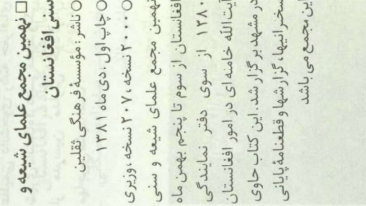 □ نهمین مجمع علمای شیعه و
سنی افغانستان
○ ناشر: مؤسسهٔ فرهنگی ثقلین
○ چاپ اول، دی ماه ۱۳۸۱
○ ۲۰۰۰ نسخه، ۲۰۷ نسخه، وزیری
نهمین مجمع علمای شیعه و سنی
افغانستان از سوم تا پنجم بهمن ماه
۱۳۸۰ از سوی دفتر نمایندگی
آیت‌الله خامنه‌ای در امور افغانستان
در مشهد برگزار شد. این کتاب حاوی
سخنرانیها، گزارشها و قطعنامهٔ پایانی
این مجمع می باشد